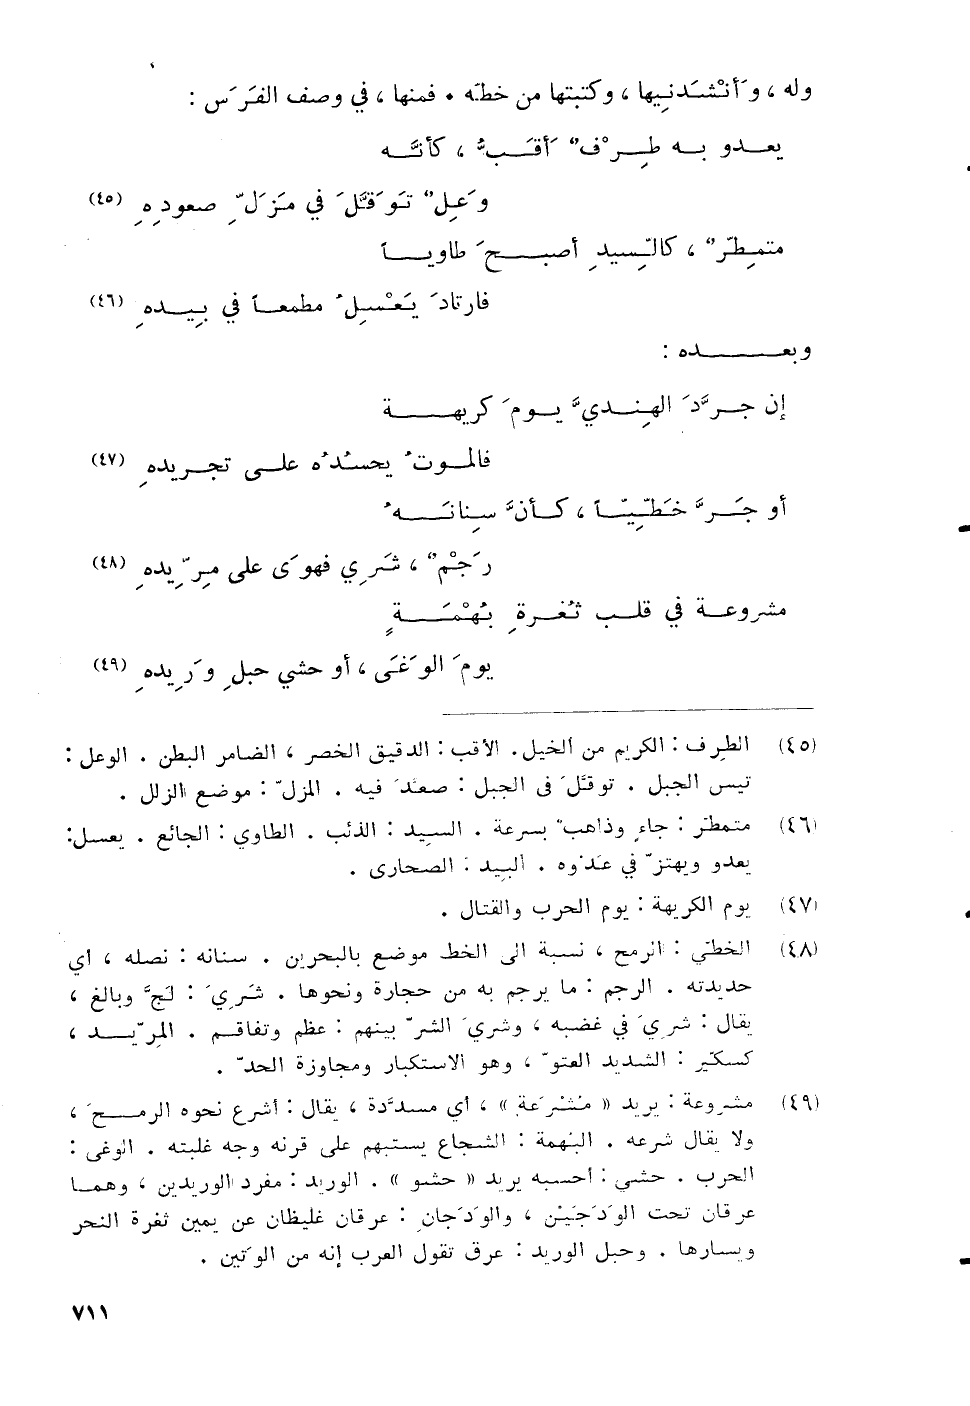 وله ، وأَنْشَدَنِيها ، وكتبتها من خطه . فمنها ، في وصف الفَرَس :
يعدو به طِرْفٌ أَقَبُّ ، كأنَّه
وَعِلٌ تَوَقَّلَ في مَزَلّ صعودِهِ (٤٥)
متمطِّرٌ ، كالسِّيدِ أصبحَ طاوياً
فارتادَ يَعْسِلُ مطمعاً في بِيدهِ (٤٦)
وبعده :
إن جرَّدَ الهِنديَّ يومَ كريهة
فالموتُ يحسُدُه على تجريدِهِ (٤٧)
أو جَرَّ خَطِّيّاً ، كأنَّ سِنانَهُ
رَجْمٌ ، شَرِي فهوَى على مِرِّيدِهِ (٤٨)
مشروعة في قلب ثُغرةِ بُهْمَةٍ
يومَ الوَغَى ، أو حشي حبلِ وَرِيدِهِ (٤٩)
(٤٥) الطِرف : الكريم من الخيل . الأقب : الدقيق الخصر ، الضامر البطن . الوعل :
تيس الجبل . توقلَ في الجبل : صعدَ فيه . المزلّ : موضع الزلل .
(٤٦) متمطر : جاءٍ وذاهبٌ بسرعة . السيد : الذئب . الطاوي : الجائع . يعسل :
يعدو ويهتزّ في عَدْوه . البيد : الصحارى .
(٤٧) يوم الكريهة : يوم الحرب والقتال .
(٤٨) الخطي : الرمح ، نسبة الى الخط موضع بالبحرين . سنانه : نصله ، أي
حديدته . الرجم : ما يرجم به من حجارة ونحوها . شَرِيَ : لجَّ وبالغ ،
يقال : شريَ في غضبه ، وشريَ الشرّ بينهم : عظم وتفاقم . المِرّيد ،
كسكير : الشديد العتوّ ، وهو الاستكبار ومجاوزة الحدّ .
(٤٩) مشروعة : يريد « مُشْرَعَة » ، أي مسدَّدة ، يقال : أشرع نحوه الرمحَ ،
ولا يقال شرعه . البُهمة : الشجاع يستبهم على قرنه وجه غلبته . الوغى :
الحرب . حشي : أحسبه يريد « حشو » . الوريد : مفرد الوريدين ، وهما
عرقان تحت الوَدَجَيْن ، والوَدَجان : عرقان غليظان عن يمين ثغرة النحر
ويسارها . وحبل الوريد : عرق تقول العرب إنه من الوَتين .
٧١١